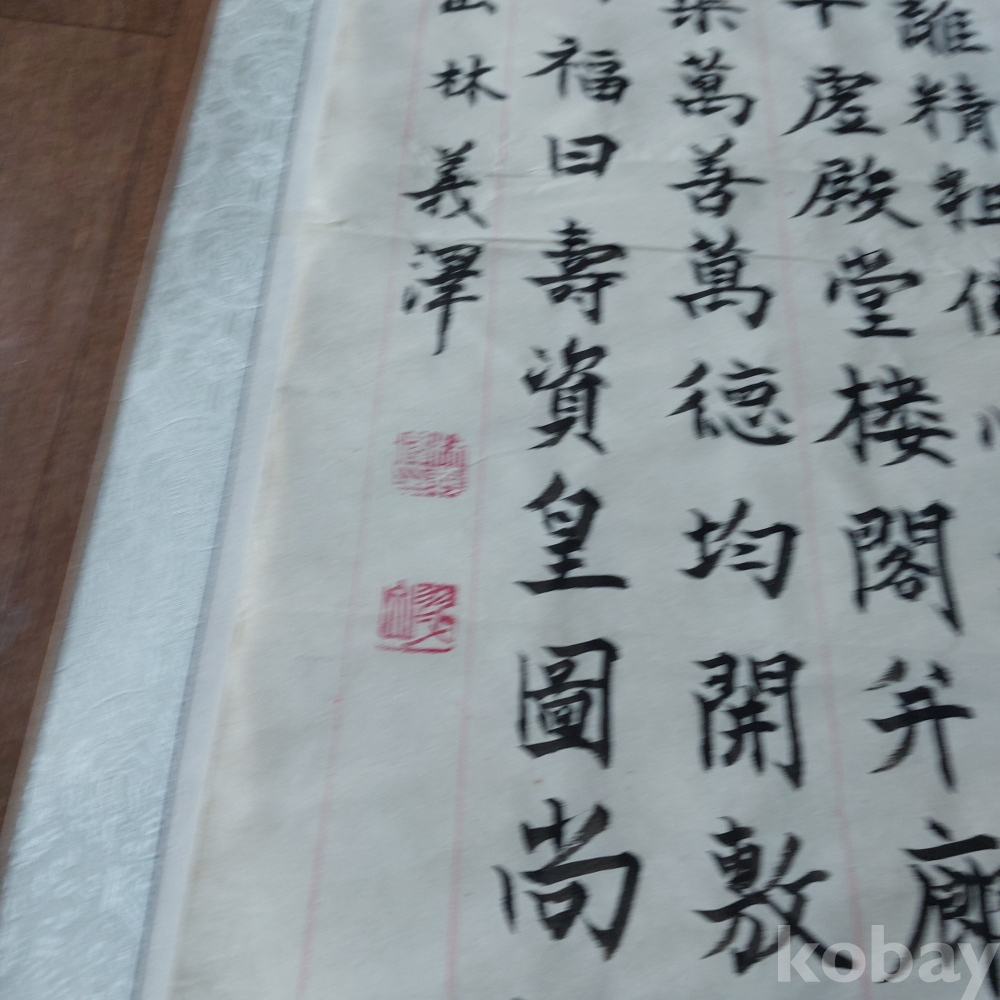 誰精粗
虚殿堂楼閣并廊
葉萬善萬德均開敷
福曰壽資皇圖尚
林義澤
kobay